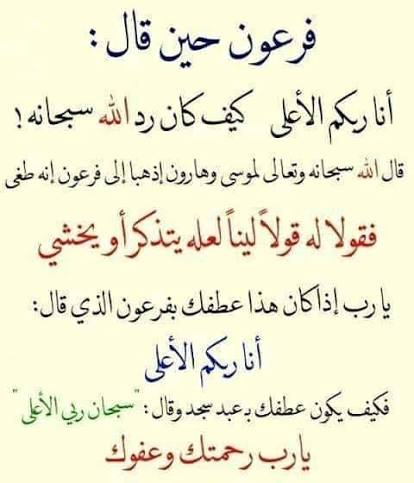 فرعون حين قال :
أنا ربكم الأعلى كيف كان رد الله سبحانه !
قال الله سبحانه وتعالى لموسى وهارون إذهبا إلى فرعون إنه طغى
فقولا له قولاً ليناً لعله يتذكر أو يخشي
يا رب إذا كان هذا عطفك بفرعون الذي قال :
أنا ربكم الأعلى
فكيف يكون عطفك بـ عبد سجد وقال : "سبحان ربي الأعلى"
يا رب رحمتك وعفوك